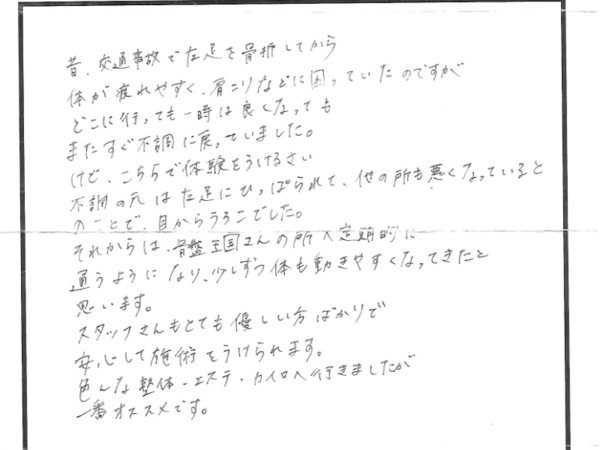 昔、交通事故で左足を骨折してから
体が疲れやすく、肩こりなどに困っていたのですが
どこに行っても一時は良くなっても
またすぐ不調に戻っていました。
けど、こちらで体験をうけるさい
不調の元は左足にひっぱられて、他の所も悪くなっていると
のことで、目からうろこでした。
それからは、骨盤王国さんの所へ定期的に
通うようになり、少しずつ体も動きやすくなってきたと
思います。
スタッフさんもとても優しい方ばかりで
安心して施術をうけられます。
色んな整体・エステ・カイロへ行きましたが
一番オススメです。